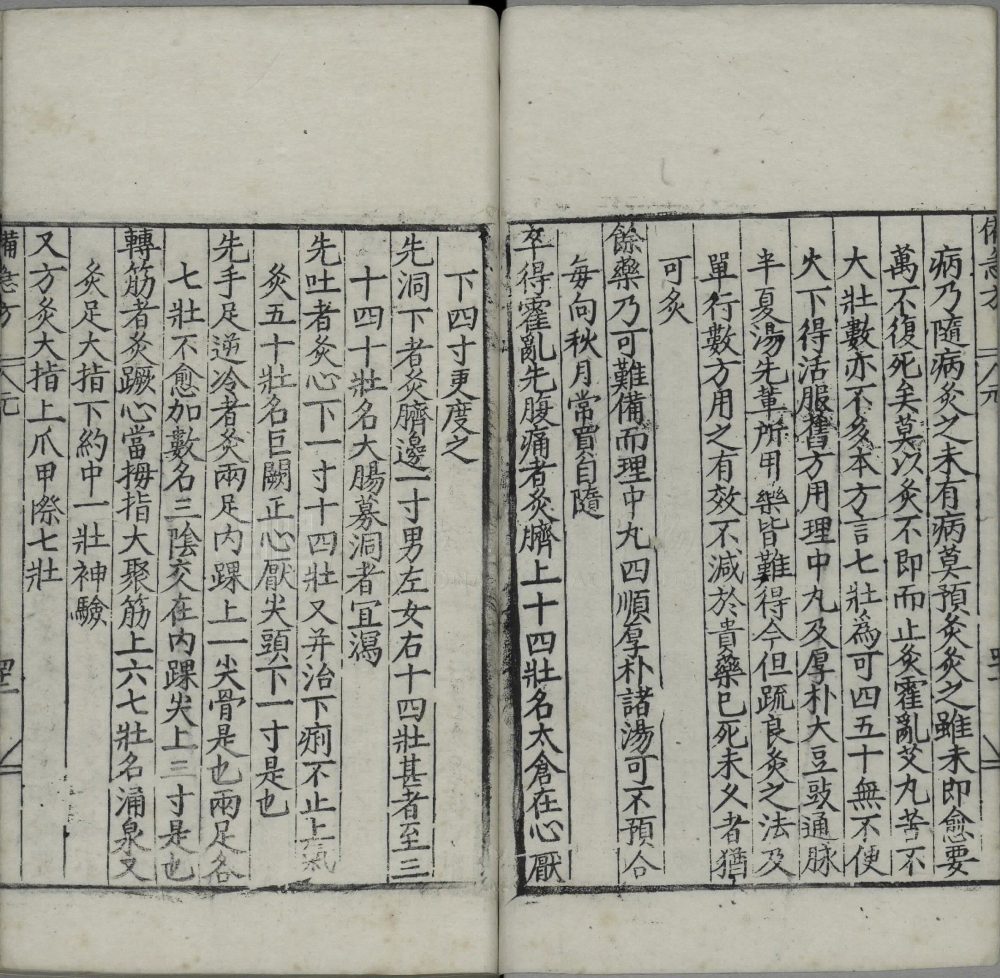 病乃隨病灸之未有病莫預灸灸之雖未即愈要
萬不復死矣莫以灸不即而止灸霍亂艾丸苦不
大壯數亦不多本方言七壯為可四五十無不便
火下得活服舊方用理中丸及厚朴大豆豉通脉
半夏湯先輩所用藥皆難得今但疏良灸之法及
單行數方用之有效不減於貴藥已死未久者猶
可灸
餘藥乃可難備而理中丸四順厚朴諸湯可不預合
每向秋月常買自隨
卒得霍亂先腹痛者灸臍上十四壯名太倉在心厭
下四寸更度之
先洞下者灸臍邊一寸男左女右十四壯甚者至三
十四十壯名大腸募洞者宜瀉
先吐者灸心下一寸十四壯又并治下痢不止上氣
灸五十壯名巨闕正心厭尖頭下一寸是也
先手足逆冷者灸兩足內踝上一尖骨是也兩足各
七壯不愈加數名三陰交在內踝尖上三寸是也
轉筋者灸蹶心當拇指大聚筋上六七壯名涌泉又
灸足大指下約中一壯神驗
又方灸大指上爪甲際七壯
備急方 八元